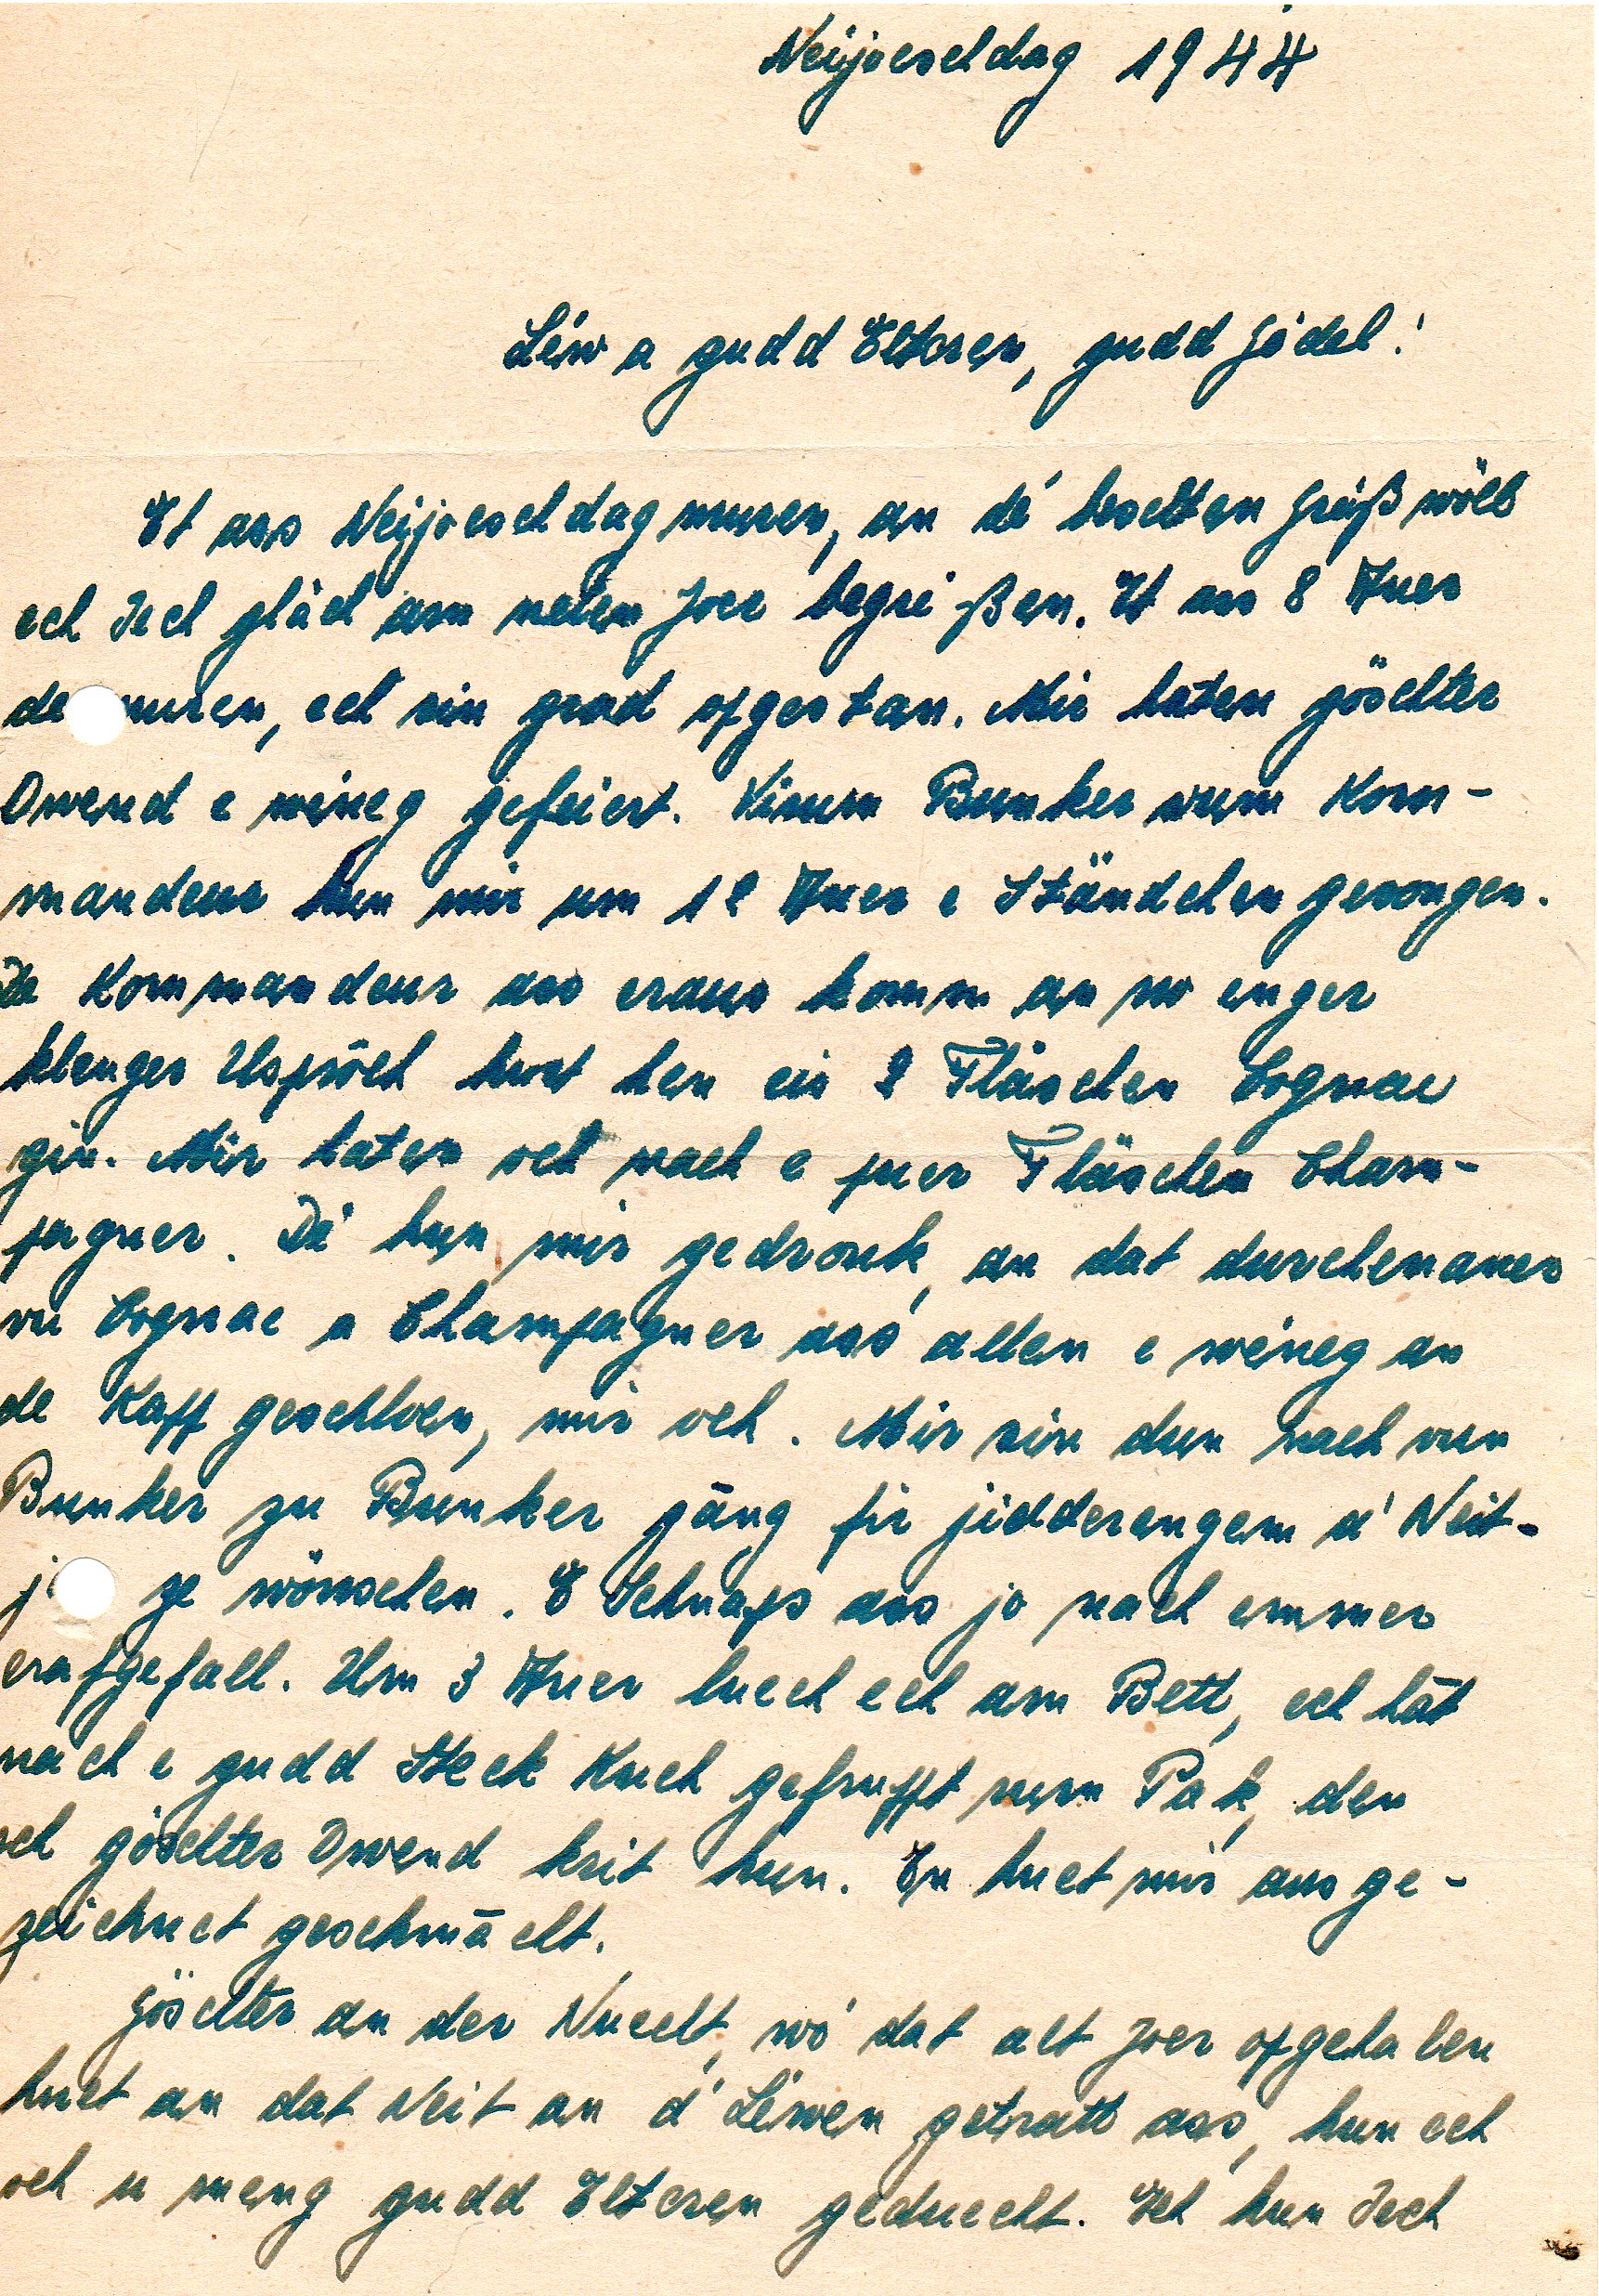 Neijoerschdag 1944
Léiw a gudd Elteren, gudd Jödel!
Et ass Neijoerschdag muren, an dé beschten Grüß wöll
ech Iech gläch am neien Joer begréißen. Et ass 8 Auer
de muren, ech sin grad opgestan. Mir haten göschter
Owend e wéineg gefeiert. Virum Bunker vum Kom-
mandeur hun mir um 12 Auer e Ständchen gesongen.
De Kommandeur ass eraus komm an no enger
klenger Usproch huet hen eis 2 Fläschen Cognac
gin. Mir haten och nach e puer Fläschen Cham-
pagner. Dé hun mir gedronk, an dat durchenaner
vu Cognac a Champagner ass allen e wéineg an
de Kapp geschloen, mir och. Mir sin dun nach vun
Bunker zu Bunker gäng fir jidderengem d'Neit-
j ze wönschen. E Schnaps ass jo nach emmer
erofgefall. Um 3 Auer luech ech am Bett, ech hät
nach e gudd Steck Kuch gefrupft vum Pak, den
ech göschter Owend krit hun. En huet mir ausge-
zeichnet geschmächt.
Göschter an der Nuecht, wó dat alt Joer opgehalen
huet an dat Neit an d'Léwen getratt ass, hun ech
och u meng gudd Elteren geduecht. Ech hun Iech